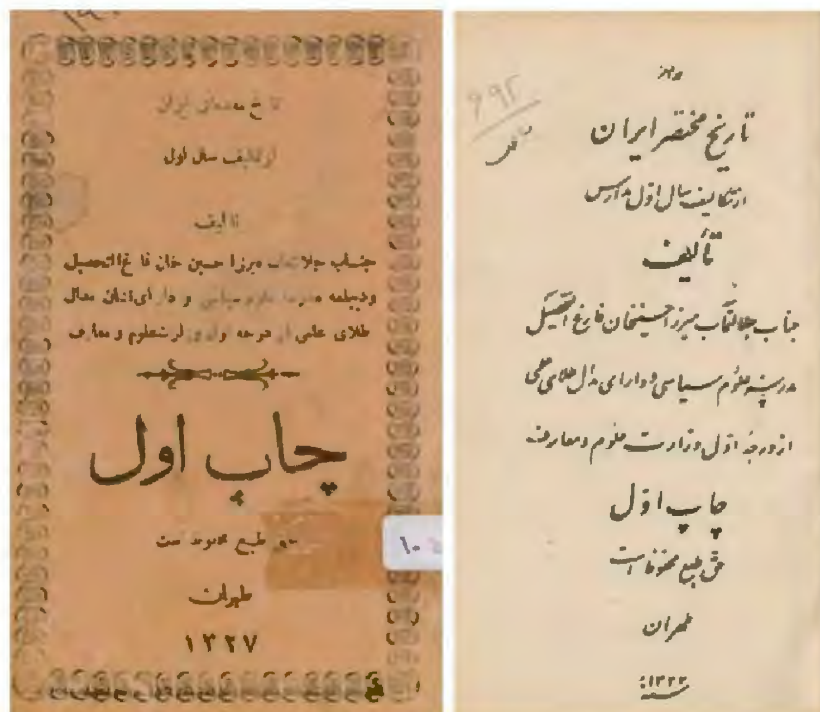 تاریخ مقدماتی ایران
از تکالیف سال اول
تالیف
جناب جلالتمآب میرزا حسین خان فارغ التحصیل
و دیپلمه مدرسه علوم سیاسی و دارای نشان مدال
طلای علمی از درجه اول وزارت علوم و معارف
چاپ اول
حق طبع محفوظ است
طهران
۱۳۲۷
۱۰
۶۹۲
تاریخ مختصر ایران
از تکالیف سال اول مدارس
تألیف
جناب جلالتمآب میرزا حسینخان فارغ التحصیل
مدرسه علوم سیاسی و دارای مدال طلای علمی
از درجه اول وزارت علوم و معارف
چاپ اول
حق طبع محفوظ است
طهران
سنه ۱۳۲۲